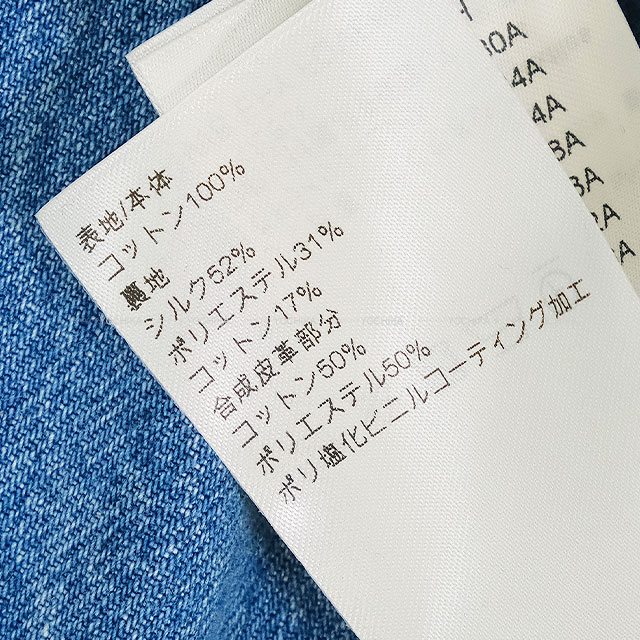 表地/本体
コットン100%
裏地
シルク52%
ポリエステル31%
コットン17%
合成皮革部分
コットン50%
ポリエステル50%
ポリ塩化ビニルコーティング加工
0A
4A
4A
3A
3A
2A
1A